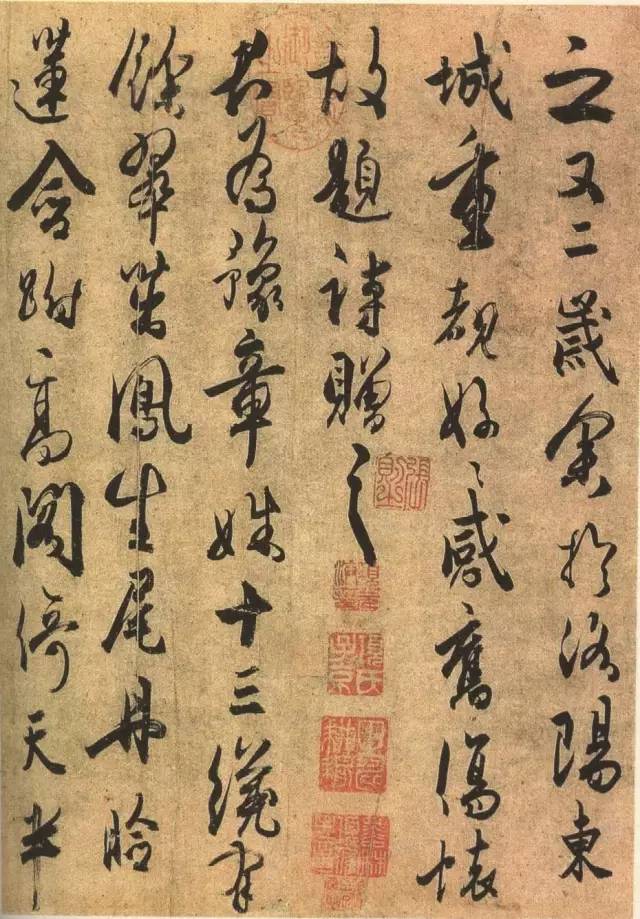 之又二歲余於洛陽東
城重覩好〻感舊傷懷
故題詩贈之
君為豫章姝十三纔有
餘翠茁鳳生尾丹臉
蓮含跗高閣倚天半